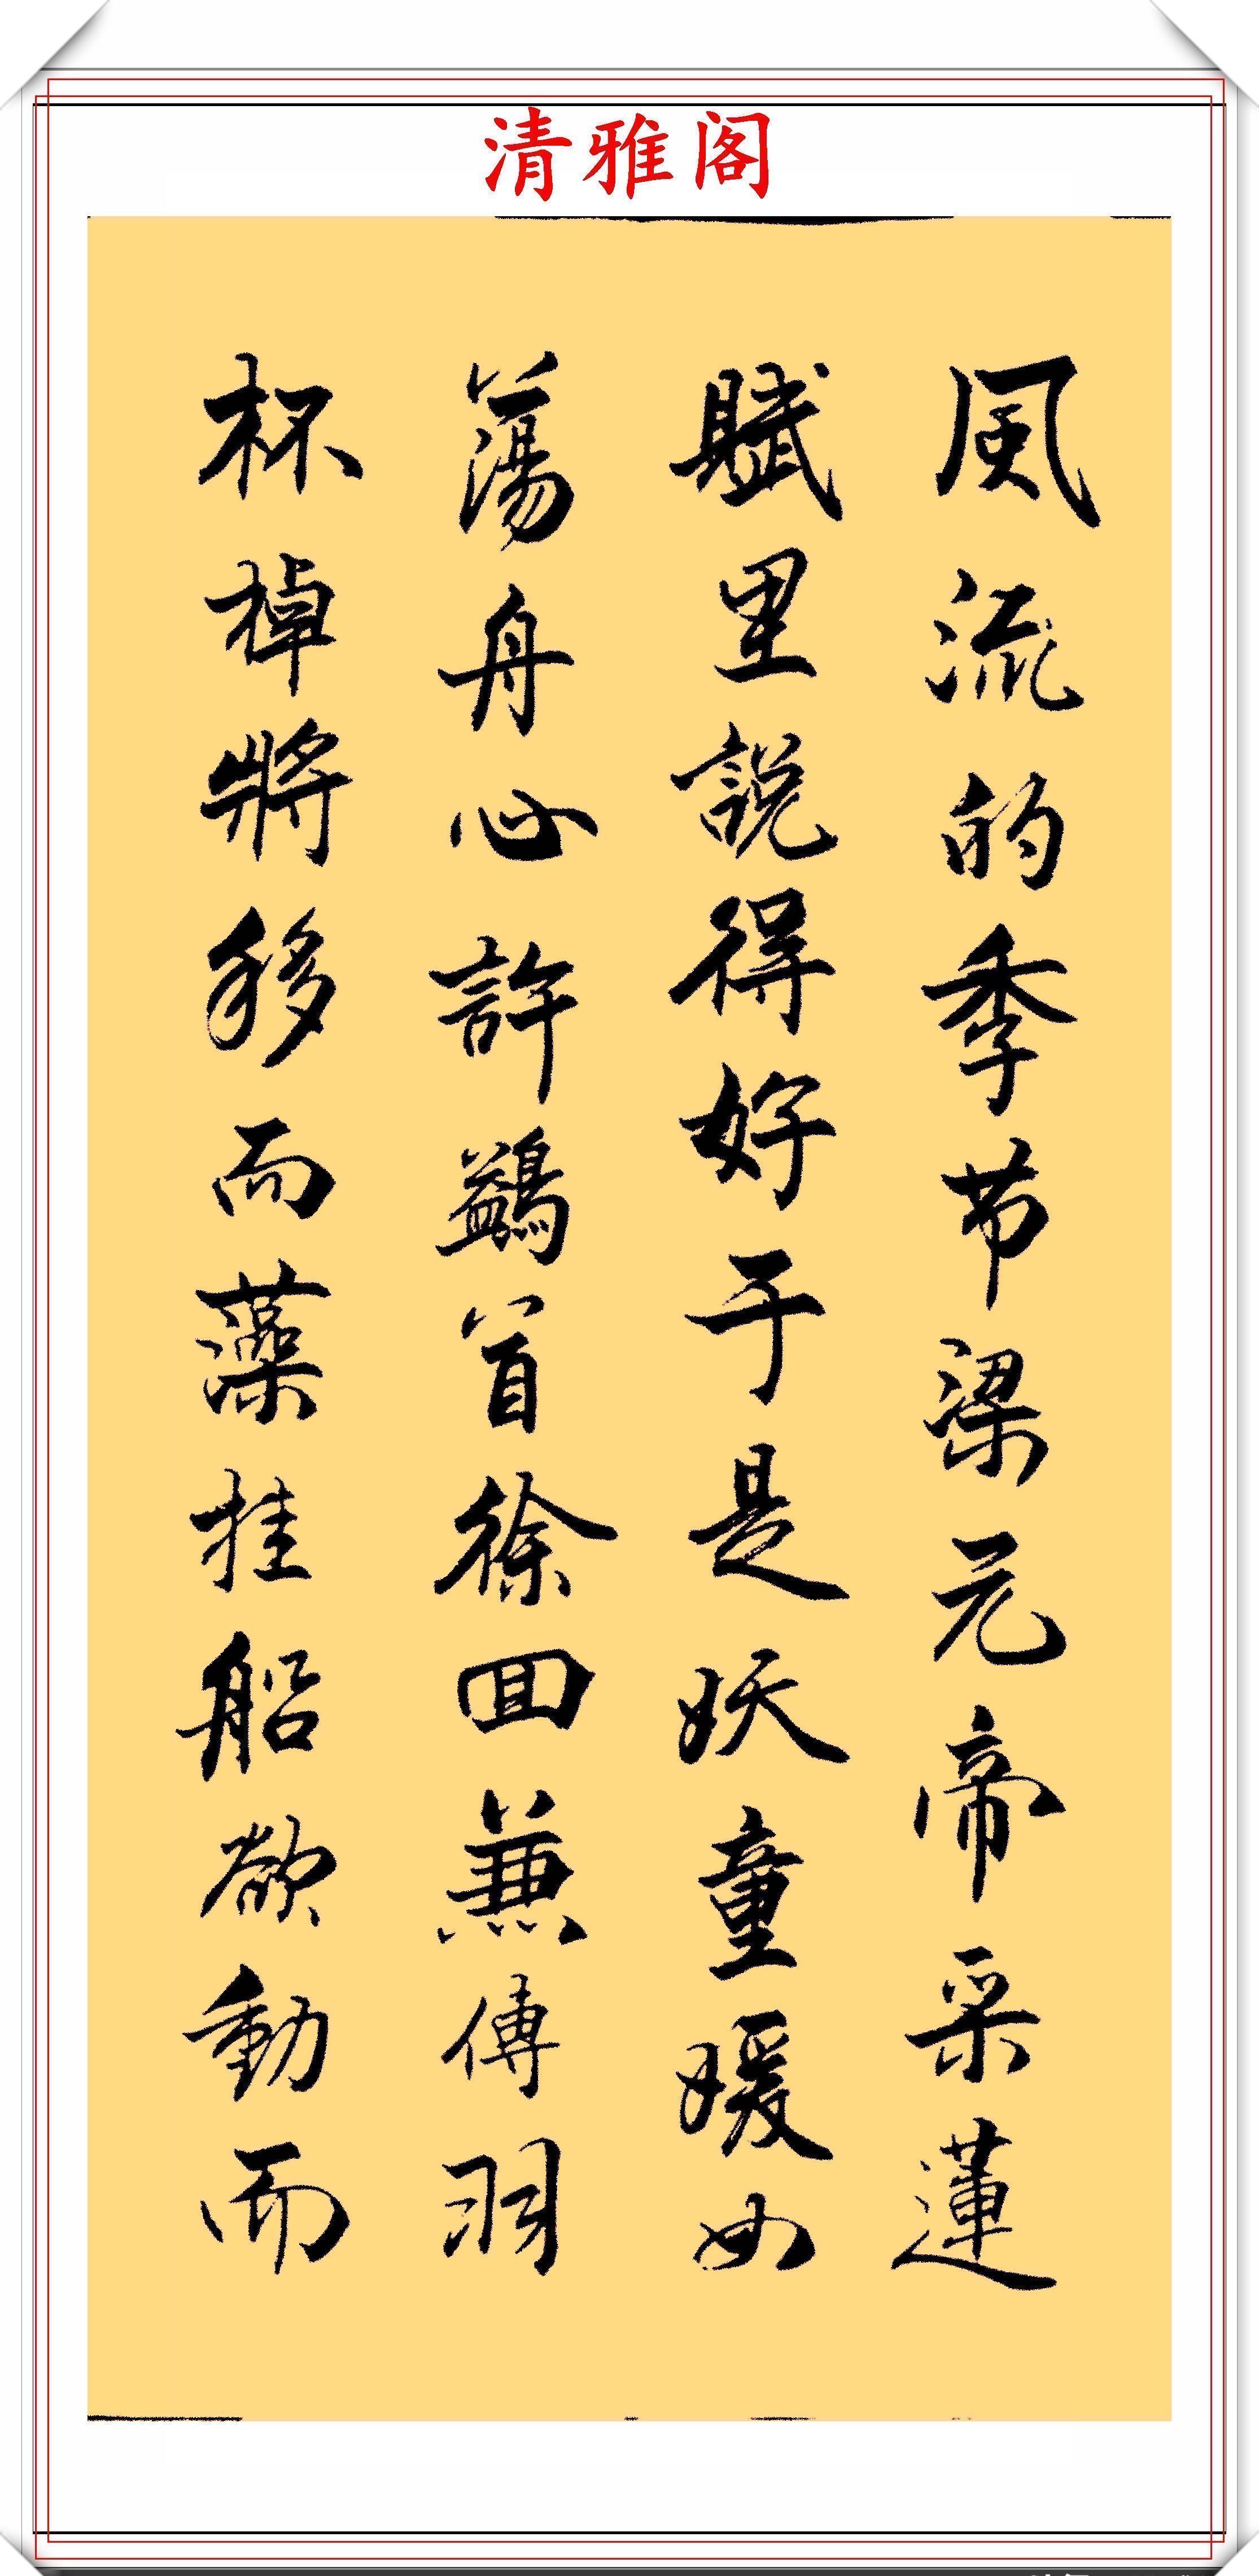 清雅阁
風流的季节梁元帝采蓮
賦里説得好于是妖童媛女
蕩舟心許鷁首徐回蒹傳羽
杯棹將移而藻挂船欲動而